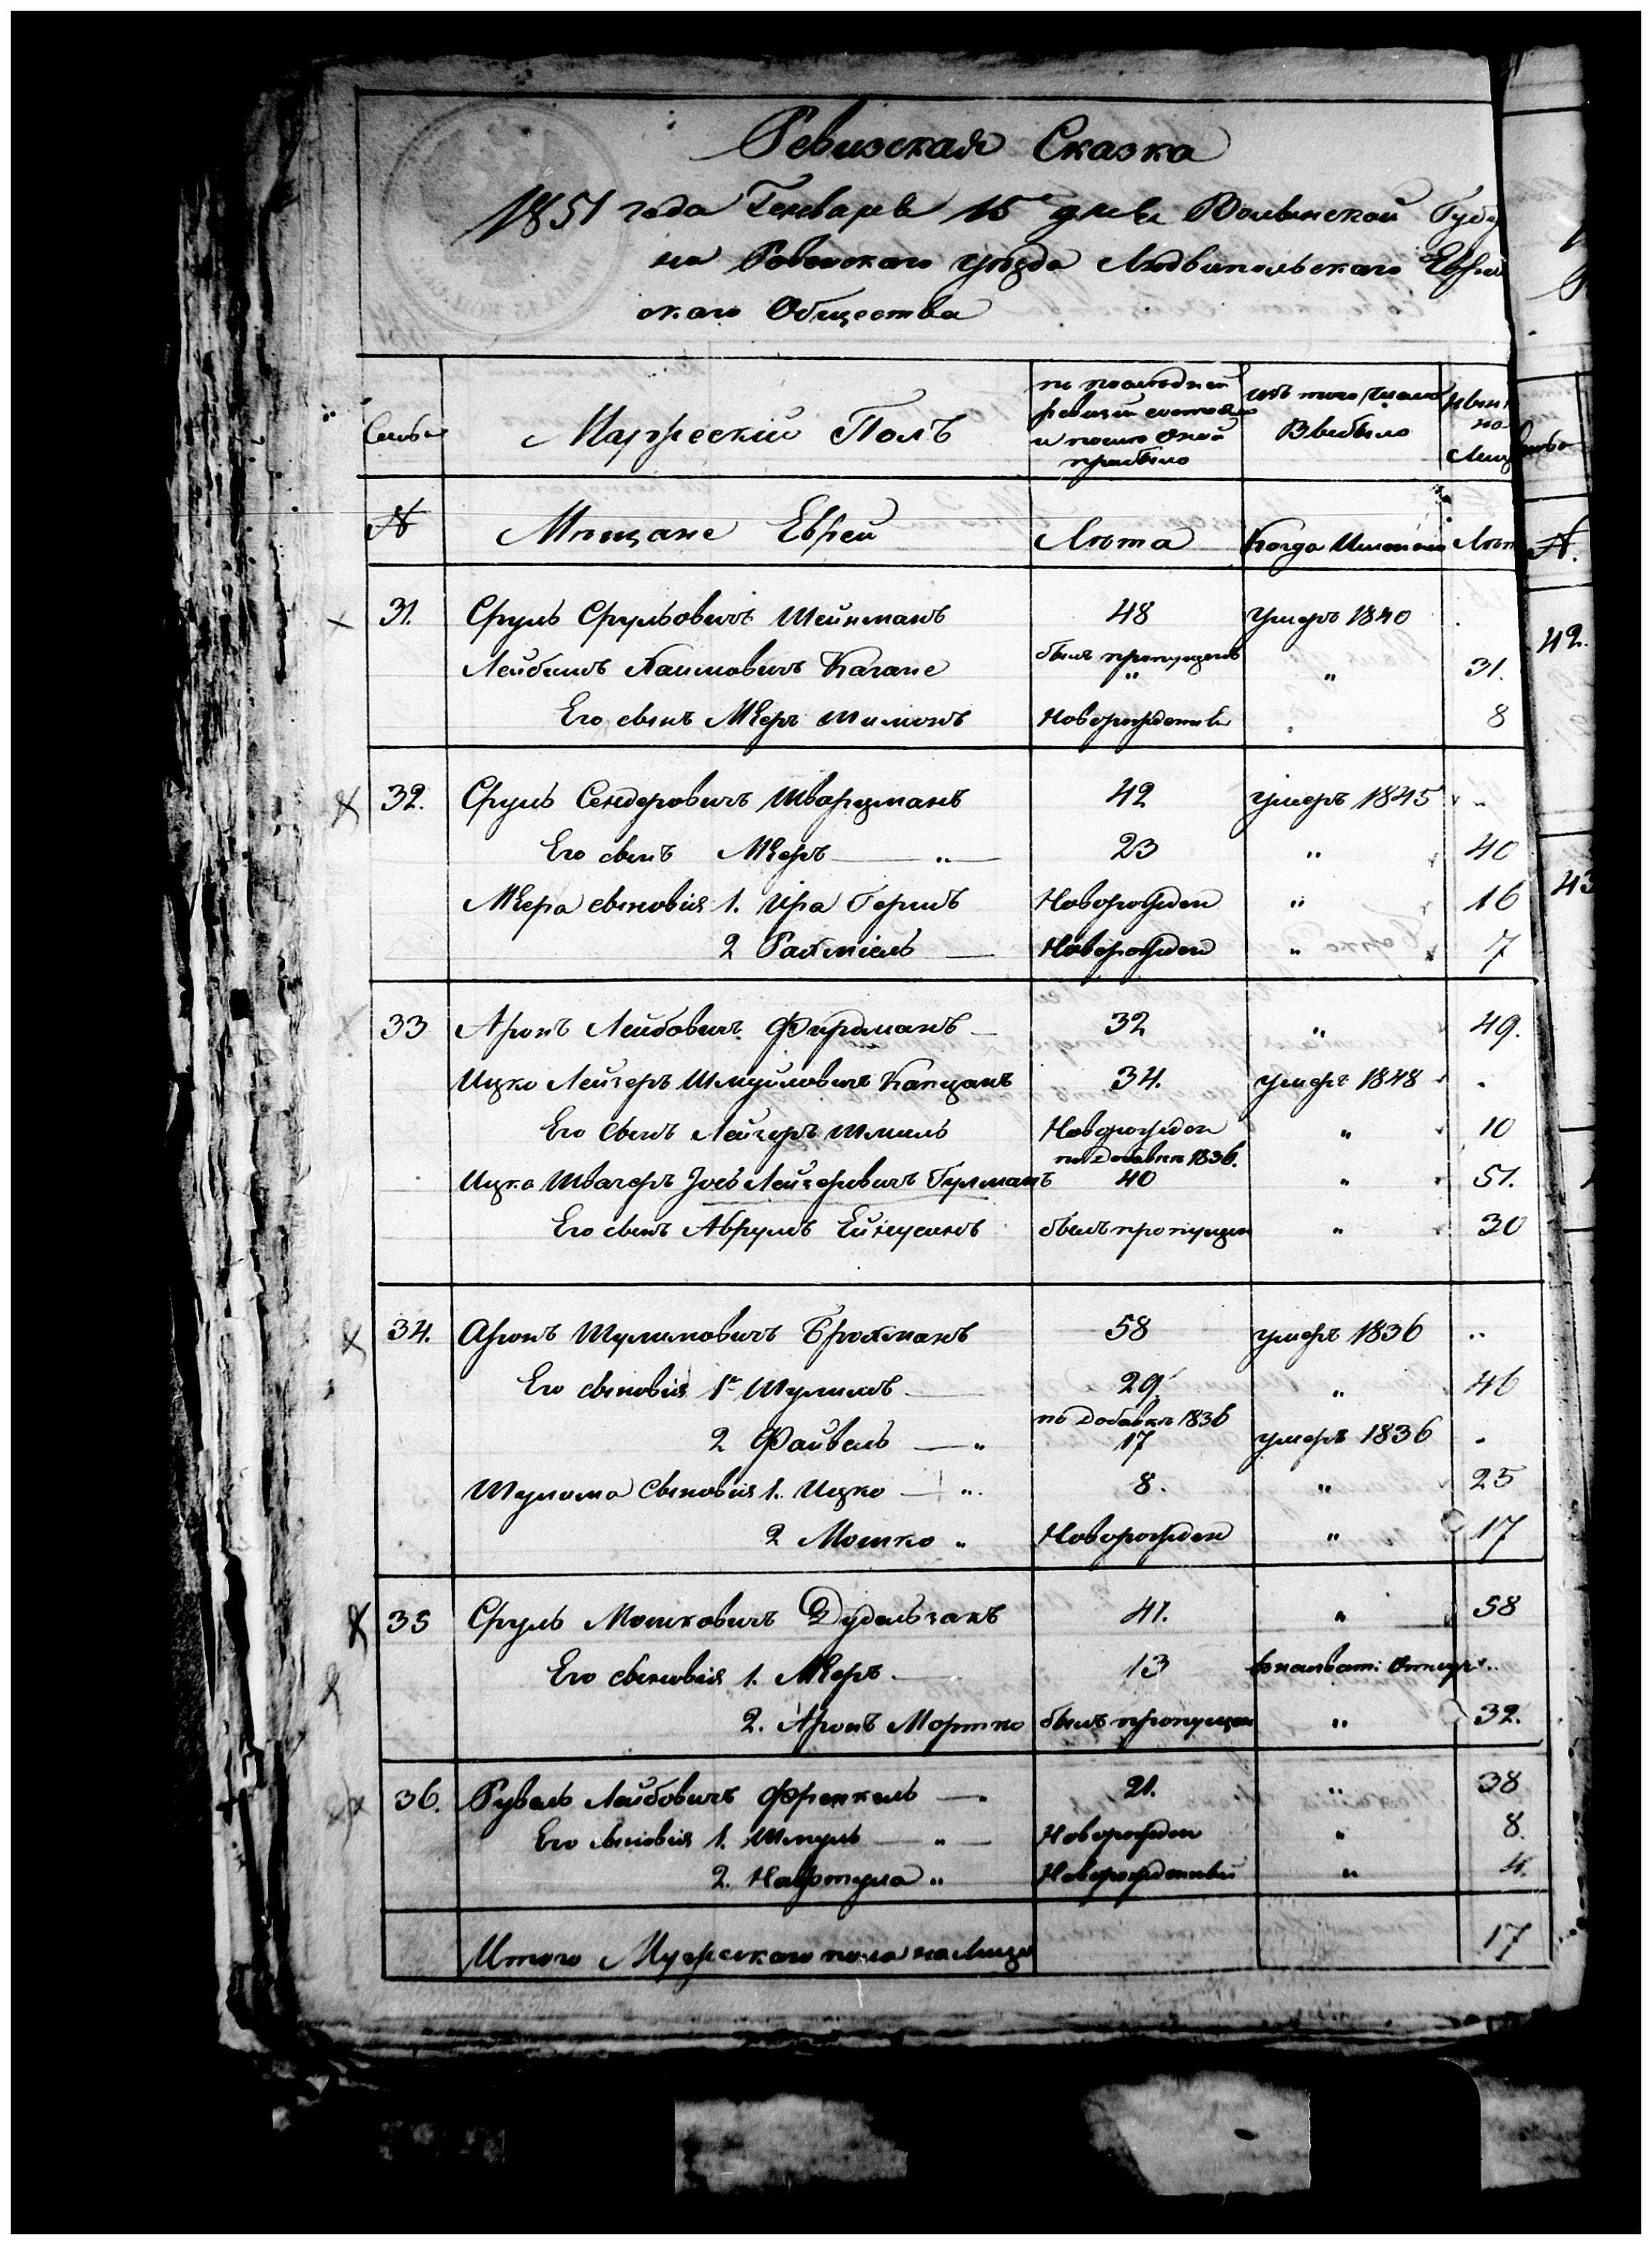 Ревизская Сказка
1851 года Генваря 15 дня Волынской Губер
на Ровенского уезда Людвипольского Еврей
ского Общества
Семьи
Мужеский Полъ
по последней
ревизии состоя
и после оной
прибыло
изъ того числа
Выбыло
ныне
на
Лицо
№ Мещане Евреи Лета Когда Именно Лет
31. Сруль Срульовичъ Шейнманъ 48 умеръ 1840
Лейбишъ Хаимовичъ Кагане былъ пропущенъ " " 31.
Его сынъ Меер Шимонъ Новорожденный 8
32. Сруль Сендеровичъ Шварцманъ 42 умеръ 1845 "
Его сынъ Мееръ — " — 23 " 40
Меера сыновья 1. Ира Гершъ Новорожден " 16
2 Рахмiель — Новорожден " 7
33 Аронъ Лейбовичъ Фурманъ — 32 " 49.
Ицко Лейзеръ Шмуйловичъ Капцанъ 34. умеръ 1848 .
Его Сынъ Лейзеръ Шмиль Новорожден " 10
по Добавки 1836.
Ицка Швагеръ Iось Лейзеровичъ Гулманъ 40 " 51.
Его сынъ Аврумъ былъ пропущен " 30
34. Аронъ Шулимовичъ Брохманъ 58 умеръ 1836 "
Его сыновья 1й Шулимъ — 29. " 46
по Добавки 1836
2 Файвель — " 17 умеръ 1836 .
Шулима Сыновья 1. Ицко — " 8. " 25
2 Мошко " Новорожден " 17
35 Сруль Мошковичъ Дудельзакъ 41. " 58
Его сыновья 1. Мееръ — 13 "
2. Аронъ Мортко былъ пропущен " 32.
36. Рувель Лейбовичъ Френкель — 21. " 38
Его сыновья 1. Шмуль — " — Новорожден " 8.
2. Нафтула " Новорожденный " 4.
Итого Мужеского пола на Лицо 17
42.
43
№.